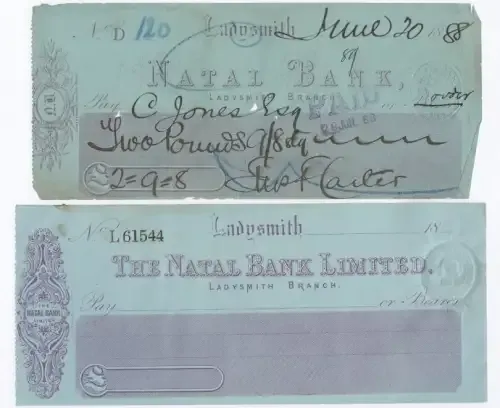 No D 120 Ladysmith June 20 1888
89
NATAL BANK,
LADYSMITH BRANCH
Pay C Jones Esq or order
PAID
Two Pounds 9/8
2=9=8
N.B
No L 61544 Ladysmith 18
THE NATAL BANK LIMITED.
LADYSMITH BRANCH.
Pay or Bearer
THE
NATAL BANK
LIMITED